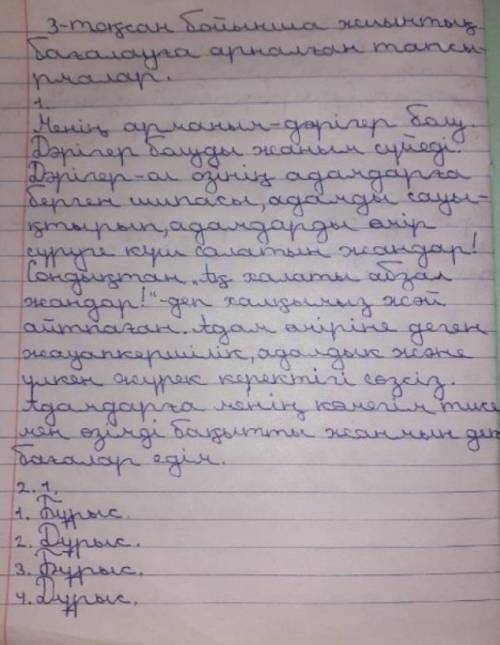 3-тоқсан бойынша жиынтық
бағалауға арналған тапсы-
рмалар.
1.
Менің арманым-дәрігер болу.
Дәрігер болуды жаным сүйеді.
Дәрігер-ол өзінің адамдарға
берген шипасы, адамды сауы-
қтырып, адамдарды өмір
сүруге күш салатын жандар!
Сондықтан „Ақ халатты абзал
жандар!"-деп халқымыз жәй
айтпаған. Адам өміріне деген
жауапкершілік, адалдық және
үлкен жүрек керектігі сөзсіз.
Адамдарға менің көмегім тисе
мен өзімді бақытты жанмын деп
бағалар едім.
2. 1.
1. Бұрыс.
2. Дұрыс.
3. Бұрыс.
4. Дұрыс.